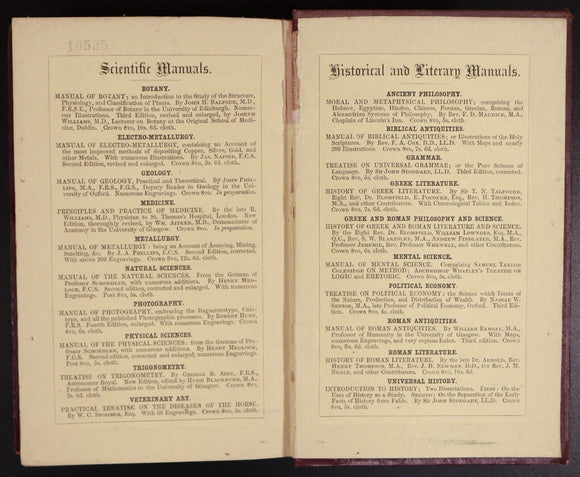 10535
Scientific Manuals.
BOTANY.
MANUAL OF BOTANY; an Introduction to the Study of the Structure,
Physiology, and Classification of Plants. By JOHN H. BALFOUR, M.D.,
F.R.S.E., Professor of Botany in the University of Edinburgh. Numer-
ous Illustrations. Third Edition, revised and enlarged, by JOSEPH
WILLIAMS, M.D., Lecturer on Botany at the Original School of Medi-
cine, Dublin. Crown 8vo, 10s. 6d. cloth.
ELECTRO-METALLURGY.
MANUAL OF ELECTRO-METALLURGY, containing an Account of
the most improved methods of depositing Copper, Silver, Gold, and
other Metals. With numerous Illustrations. By JAS. NAPIER, F.C.S.
Second Edition, revised and enlarged. Crown 8vo, 3s. 6d. cloth.
GEOLOGY.
MANUAL OF GEOLOGY, Practical and Theoretical. By JOHN PHIL-
LIPS, M.A., F.R.S., F.G.S., Deputy Reader in Geology in the Uni-
versity of Oxford. Numerous Engravings. Crown 8vo. In preparation.
MEDICINE.
PRINCIPLES AND PRACTICE OF MEDICINE. By the late R.
WILLIAMS, M.D., Physician to St. Thomas's Hospital, London. New
Edition, thoroughly revised, by WM. AITKEN, M.D., Demonstrator of
Anatomy in the University of Glasgow. Crown 8vo. In preparation.
METALLURGY.
MANUAL OF METALLURGY: being an Account of Assaying, Mining,
Smelting, &c. By J. A. PHILLIPS, F.C.S. Second Edition, corrected.
With above 200 Engravings. Crown 8vo, 12s. 6d. cloth.
NATURAL SCIENCES.
MANUAL OF THE NATURAL SCIENCES. From the German of
Professor SCHOEDLER, with numerous additions. By HENRY MED-
LOCK, F.C.S. Second edition, corrected and enlarged. With numerous
Engravings. Post 8vo, cloth.
PHOTOGRAPHY.
MANUAL OF PHOTOGRAPHY, embracing the Daguerreotype, Calo-
type, and all the published Photographic processes. By ROBERT HUNT,
F.R.S. Fourth Edition, enlarged. With numerous Engravings. Crown
8vo, 6s. cloth.
PHYSICAL SCIENCES.
MANUAL OF THE PHYSICAL SCIENCES: from the German of Pro-
fessor SCHOEDLER, with numerous additions. By HENRY MEDLOCK,
F.C.S. Second edition, corrected and enlarged, numerous Engravings.
Post 8vo, 5s. cloth.
TRIGONOMETRY.
TREATISE ON TRIGONOMETRY. By GEORGE B. AIRY, F.R.S.,
Astronomer Royal. New Edition, edited by HUGH BLACKBURN, M.A.,
Professor of Mathematics in the University of Glasgow. Crown 8vo,
2s. 6d. cloth.
VETERINARY ART.
PRACTICAL TREATISE ON THE DISEASES OF THE HORSE.
By W. C. SPOONER, Esq. With 50 Engravings. Crown 8vo, 3s. 6d. cloth.
Historical and Literary Manuals.
ANCIENT PHILOSOPHY.
MORAL AND METAPHYSICAL PHILOSOPHY; comprising the
Hebrew, Egyptian, Hindoo, Chinese, Persian, Grecian, Roman, and
Alexandrian Systems of Philosophy. By REV. F. D. MAURICE, M.A.,
Chaplain of Lincoln's Inn. Crown 8vo, 5s. cloth.
BIBLICAL ANTIQUITIES.
MANUAL OF BIBLICAL ANTIQUITIES; or Illustrations of the Holy
Scriptures. By Rev. F. A. COX, D.D., LL.D. With Maps and nearly
200 Illustrations. Crown 8vo, 7s. 6d. cloth.
GRAMMAR.
TREATISE ON UNIVERSAL GRAMMAR; or the Pure Science of
Language. By SIR JOHN STODDART, LL.D. Third Edition, corrected.
Crown 8vo, cloth.
GREEK LITERATURE.
HISTORY OF GREEK LITERATURE. By Sir T. N. TALFOURD,
Right Rev. Dr. BLOMFIELD, E. POCOCKE, Esq., Rev. H. THOMPSON,
M.A., and other Contributors. With Chronological Tables and Index.
Crown 8vo, 7s. 6d. cloth.
GREEK AND ROMAN PHILOSOPHY AND SCIENCE.
HISTORY OF GREEK AND ROMAN LITERATURE AND SCIENCE.
By the Right Rev. Dr. BLOMFIELD, WILLIAM LOWNDES, Esq., M.A.,
Q.C., Rev. S. W. BLAKESLEY, M.A., ANDREW FINDLATER, M.A., Rev.
Professor JEREMIE, Rev. Professor WHEWELL, and other Contributors.
Crown 8vo, 6s. cloth.
MENTAL SCIENCE.
MANUAL OF MENTAL SCIENCE. Comprising SAMUEL TAYLOR
COLERIDGE ON METHOD; ARCHBISHOP WHATELY'S TREATISE ON
LOGIC and RHETORIC. Crown 8vo, 5s. cloth.
POLITICAL ECONOMY.
TREATISE ON POLITICAL ECONOMY: the Science which Treats of
the Nature, Production, and Distribution of Wealth. By NASSAU W.
SENIOR, M.A., late Professor of Political Economy, Oxford. Third Edi-
tion. Crown 8vo, 4s. cloth.
ROMAN ANTIQUITIES.
MANUAL OF ROMAN ANTIQUITIES. By WILLIAM RAMSAY, M.A.,
Professor of Humanity in the University of Glasgow. With Maps,
numerous Engravings, and very copious Index. Third edition. Crown
8vo, 8s. 6d. cloth.
ROMAN LITERATURE.
HISTORY OF ROMAN LITERATURE. By the late Dr. ARNOLD, Rev.
HENRY THOMPSON, M.A., Rev. J. H. NEWMAN, D.D., the Rev. J. M.
NEALE, and other Contributors. Crown 8vo, 10s. 6d.
UNIVERSAL HISTORY.
INTRODUCTION TO HISTORY; Two Dissertations. First: On the
Uses of History as a Study. SECOND: On the Separation of the Early
Facts of History from Fable. By Sir JOHN STODDART, LL.D. Crown
8vo, 5s. cloth.